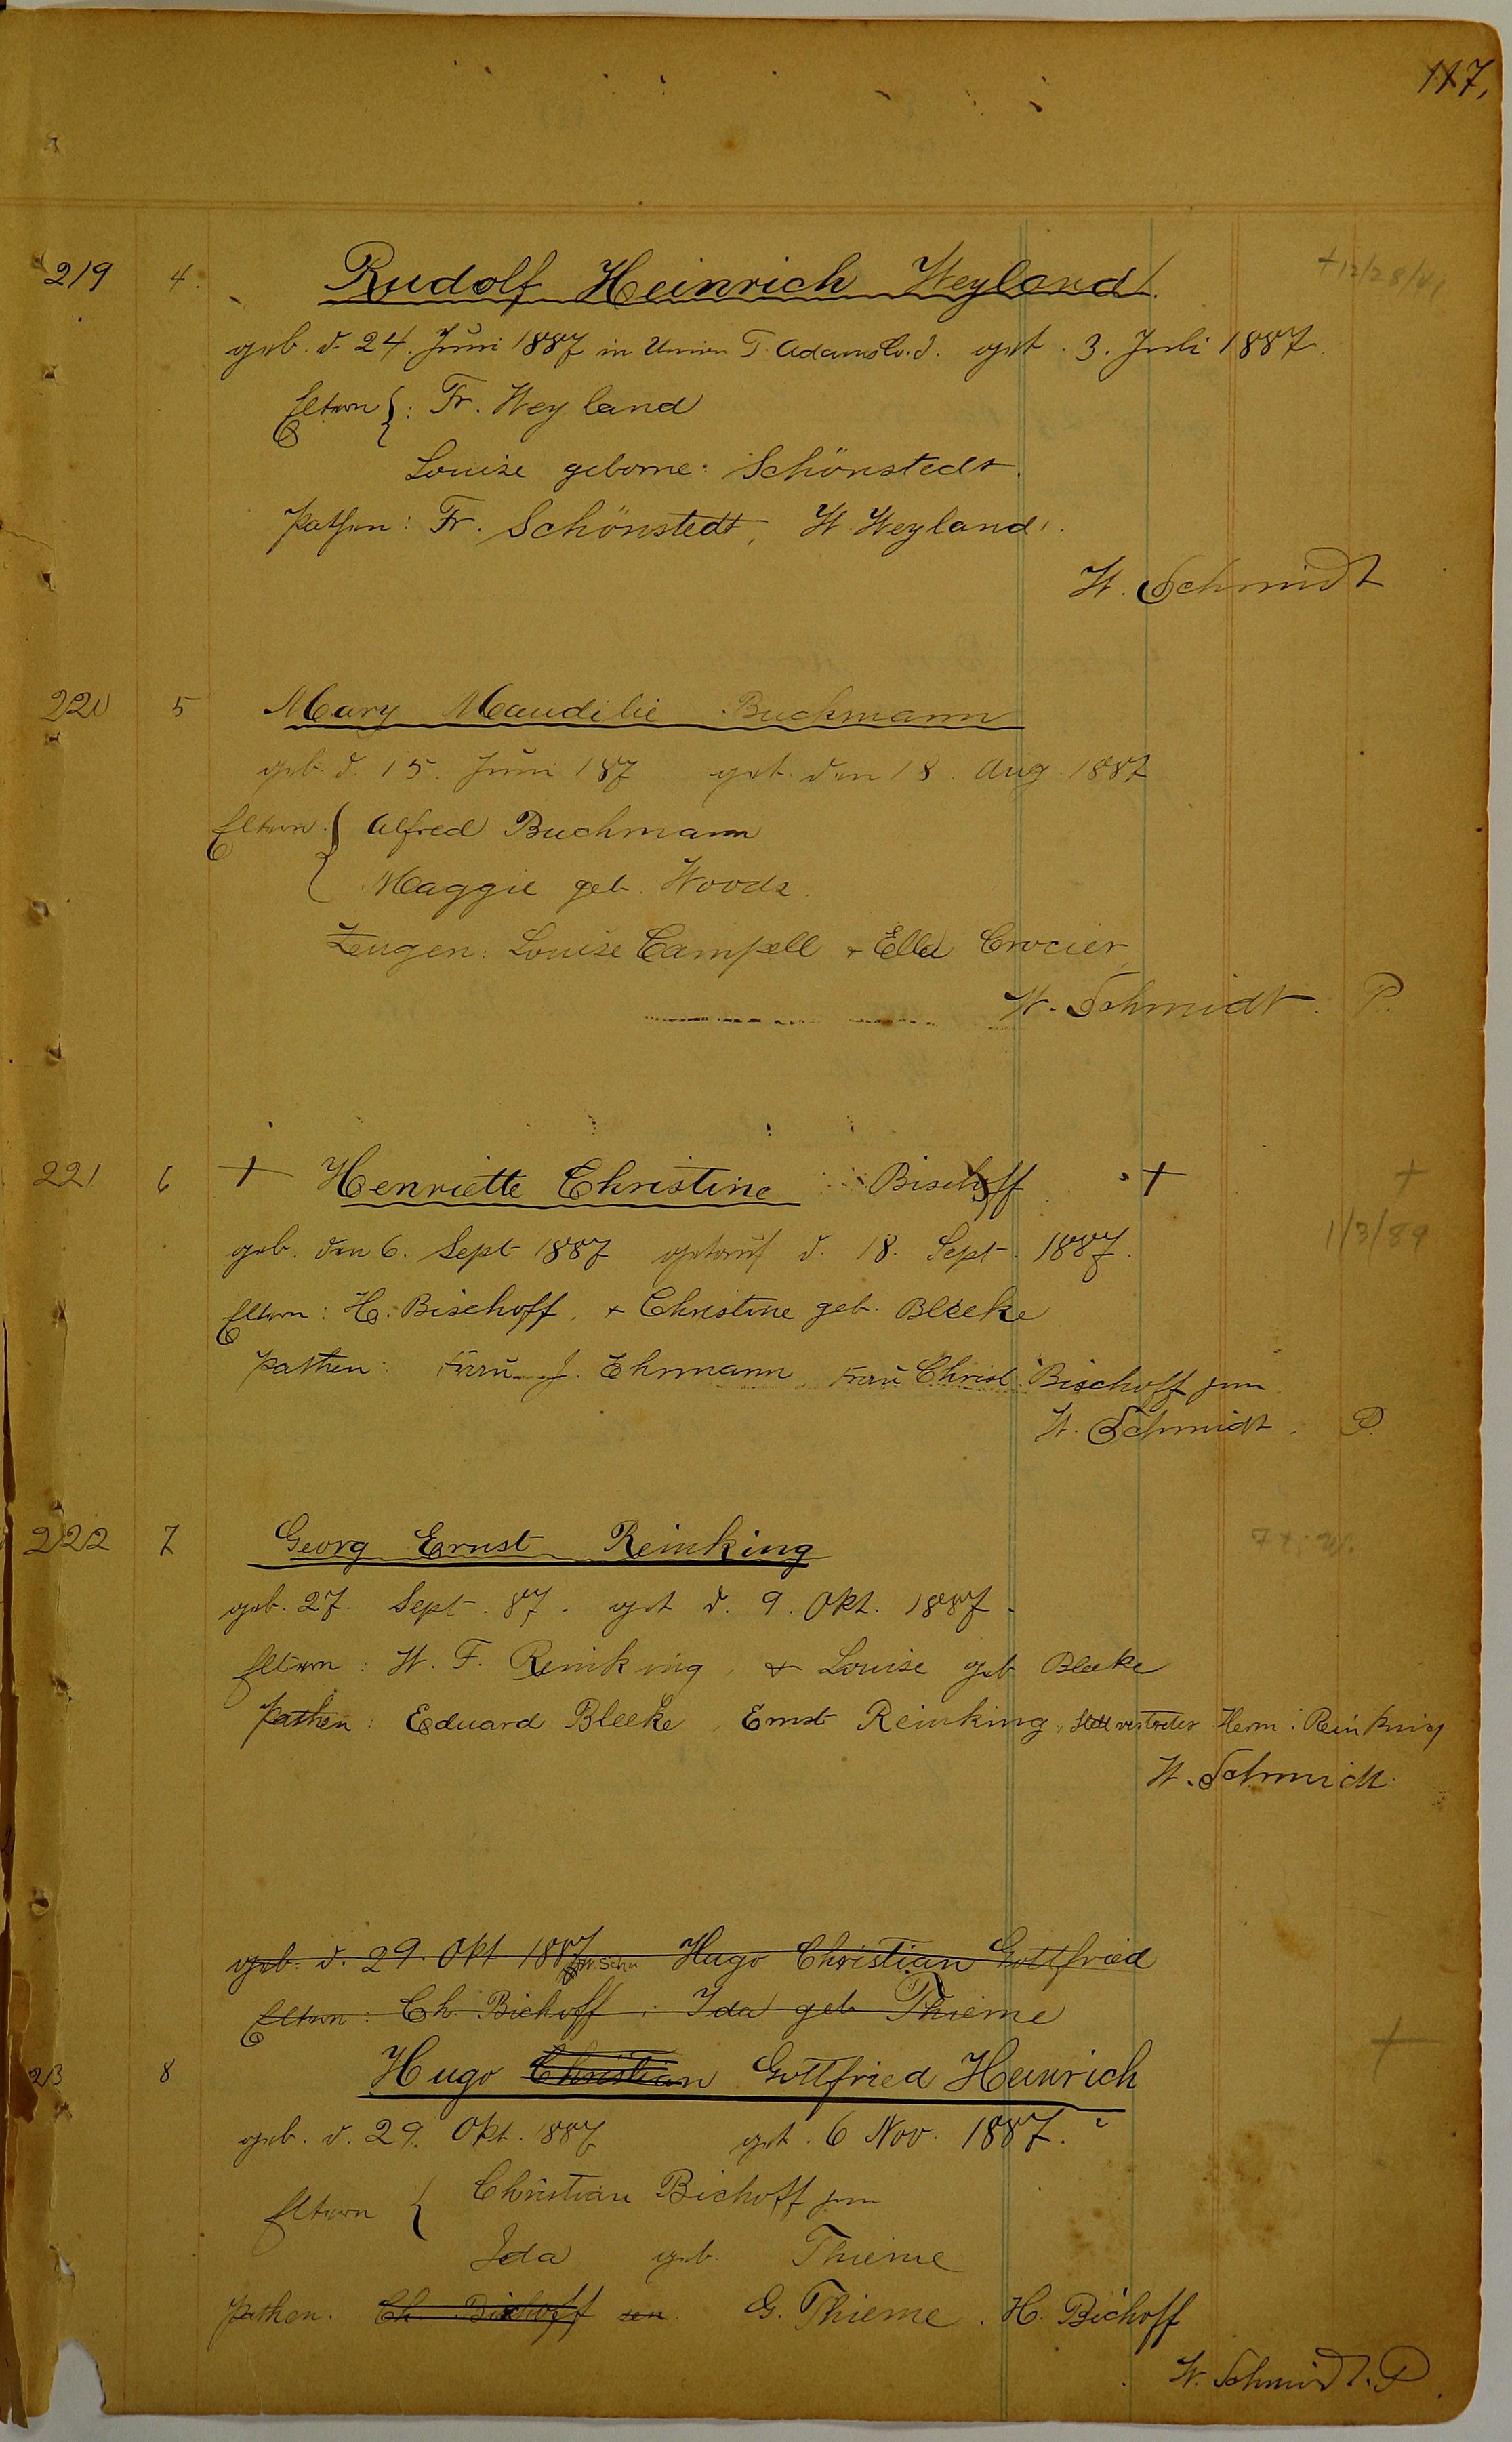 117,
219 4. Rudolf Heinrich Weyland. +12/28/41
geb. d. 24. Juni 1887 in Union T. Adams Co. J. get. 3. Juli 1887.
Eltern {: Fr. Weyland
Louise geborne: Schönstedt.
Pathen: Fr. Schönstedt, W. Weyland.
W. Schmidt
220 5 Mary Maudilie Buckmann
geb. d. 15. Juni 187 get. den 18. Aug. 1887
Eltern. { Alfred Buchmann
Maggie geb. Woods.
Zeugen: Louise Campell + Ella Crocier
W. Schmidt. P.
221 6 + Henriette Christine Bischoff + +
geb. den 6. Sept 1887 getauf d. 18. Sept. 1887. 1/3/89
Eltern: H. Bischoff, + Christine geb. Bleeke
Pathen: Frau J. Ehrmann, Frau Christ. Bischoff jun.
W. Schmidt. P.
222 7 Georg Ernst Reinking
geb. 27. Sept. 87. get d. 9. Okt. 1887.
Eltern: W. F. Reinking, + Louise geb Bleeke
Pathen: Eduard Bleeke, Ernst Reinking, Stellvertreter Herm. Reinking
W. Schmidt.
geb. d. 29. Okt 1887 W. Schm Hugo Christian Gottfried
Eltern: Ch. Bichoff. Ida geb Thieme
+
23 8 Hugo Christian Gottfried Heinrich
geb. d. 29. Okt. 1887 get. 6 Nov. 1887.
Eltern { Christian Bichoff jun
Ida geb. Thieme
Pathen. Ch. Bischoff sen. G. Thieme. H. Bichoff
W. Schmidt. P.